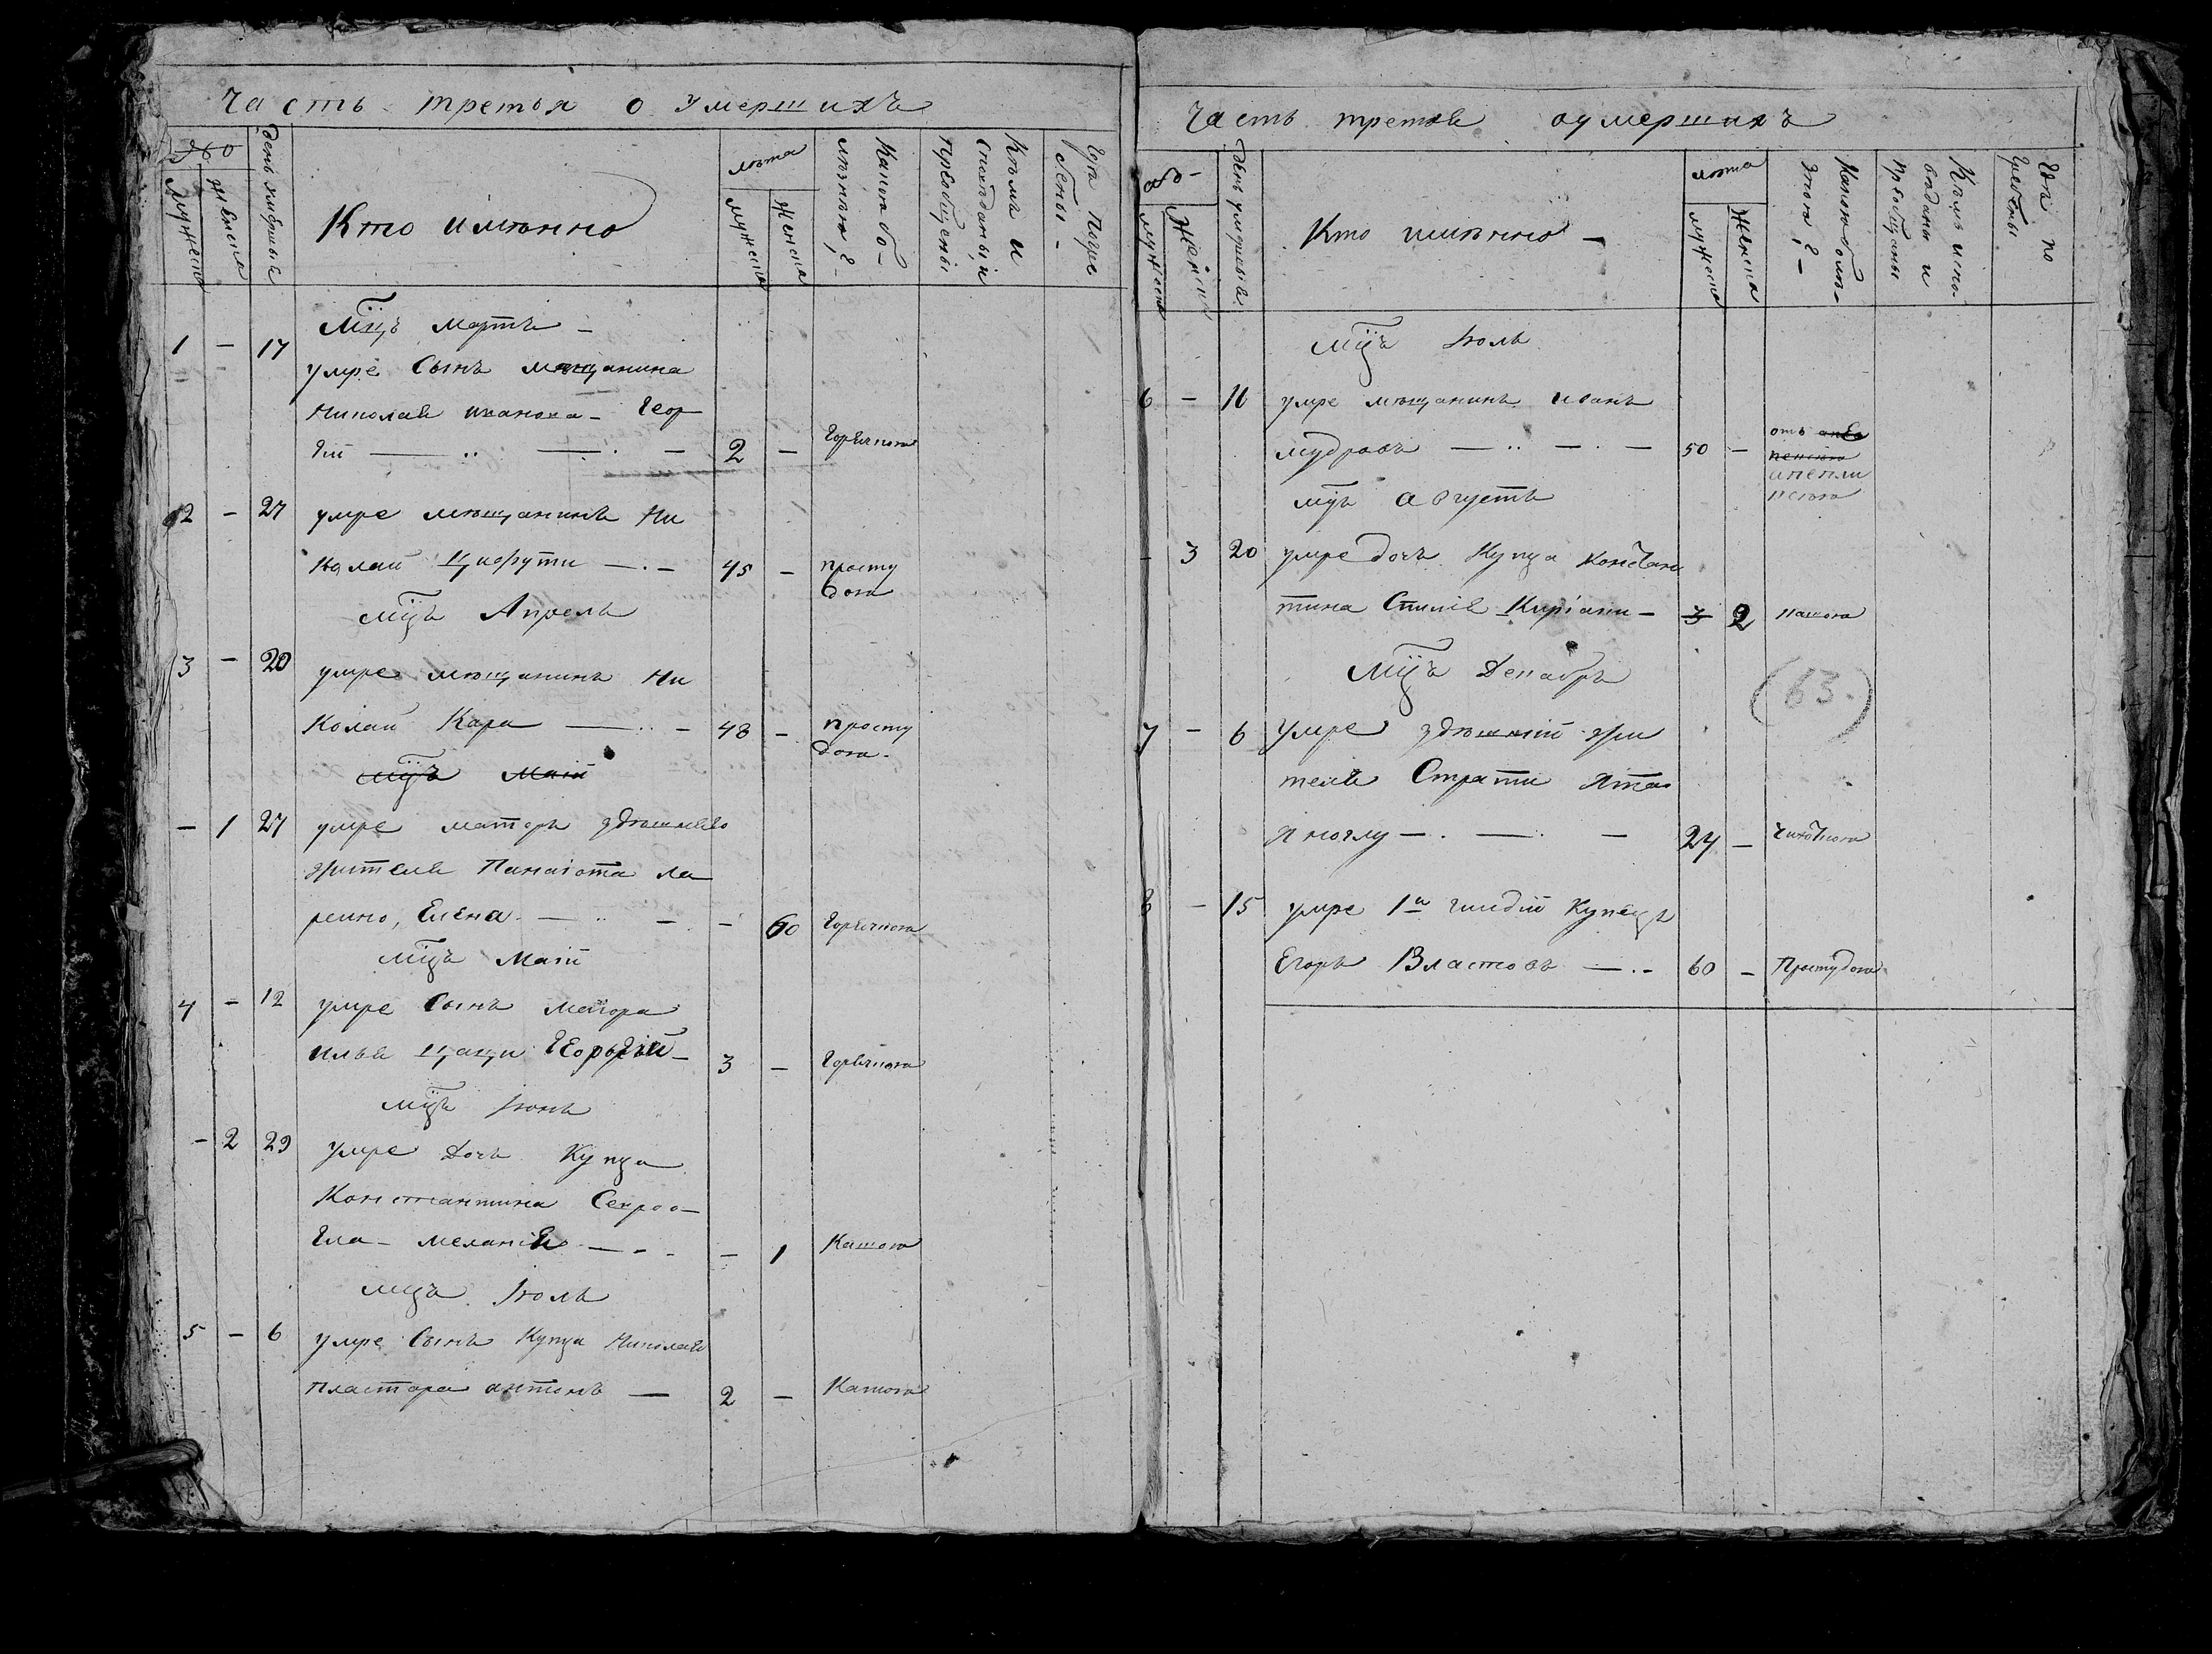 Часть третья о умершихъ
№
Мужеска
Женска
день умершые
Кто имѣнно
лѣта
Мужеска
Женска
Какою бо-
лѣзнью?
Кѣмъ и
сповѣданы, и
Пріобщены
Гдѣ Погре
бены
Мцъ Мартъ -
1 - 17
умре Сынъ мѣщанина
Николая иванова - Геор
гій 2 - Горячкою
2 - 27 умре мѣщанинъ Ни
колай Цифути 45 - просту
дою
Мцъ Апрель
3 - 20 умре мѣщанинъ Ни
колай Кара 48 - просту
дою
мцъ Маій
- 1 27 умре матерь здѣшнево
жителя Панаіота ла
рсино, Елена - 60 Горячкою
мцъ Маій
4 - 12 умре Сынъ маіора
ильи цаци Георгій 3 - Горячкою
мцъ Іюнь
- 2 29 умре Дочь Купца
Константина Секрео-
гла - меланія - 1 Кашою
мцъ Іюль
5 - 6 умре Сынъ Купца Николая
пластара антонъ 2 - Кашою
Часть третья о умершихъ
Мужеска
Женска
день умершые
Кто имѣнно -
лѣта
Мужеска
Женска
Какою болѣ-
знію? -
Кѣмъ испо-
вѣданы и
Пріобщены
Гдѣ по
гребены
мцъ Іюль
6 - 16 умре мѣщанинъ иванъ
мудровъ 50 - отъ
апепли
ксіою
мцъ августъ
- 3 20 умре дочь Купца констан
тина Спилія Киріаки - 3 2 кашою
Мцъ Декабрь
(63.)
7 - 6 умре здѣшній жи
тель Страти
24 - Чихоткою
8 - 15 умре 1й гилдіи Купецъ
Егоръ Властовъ 60 - Простудою